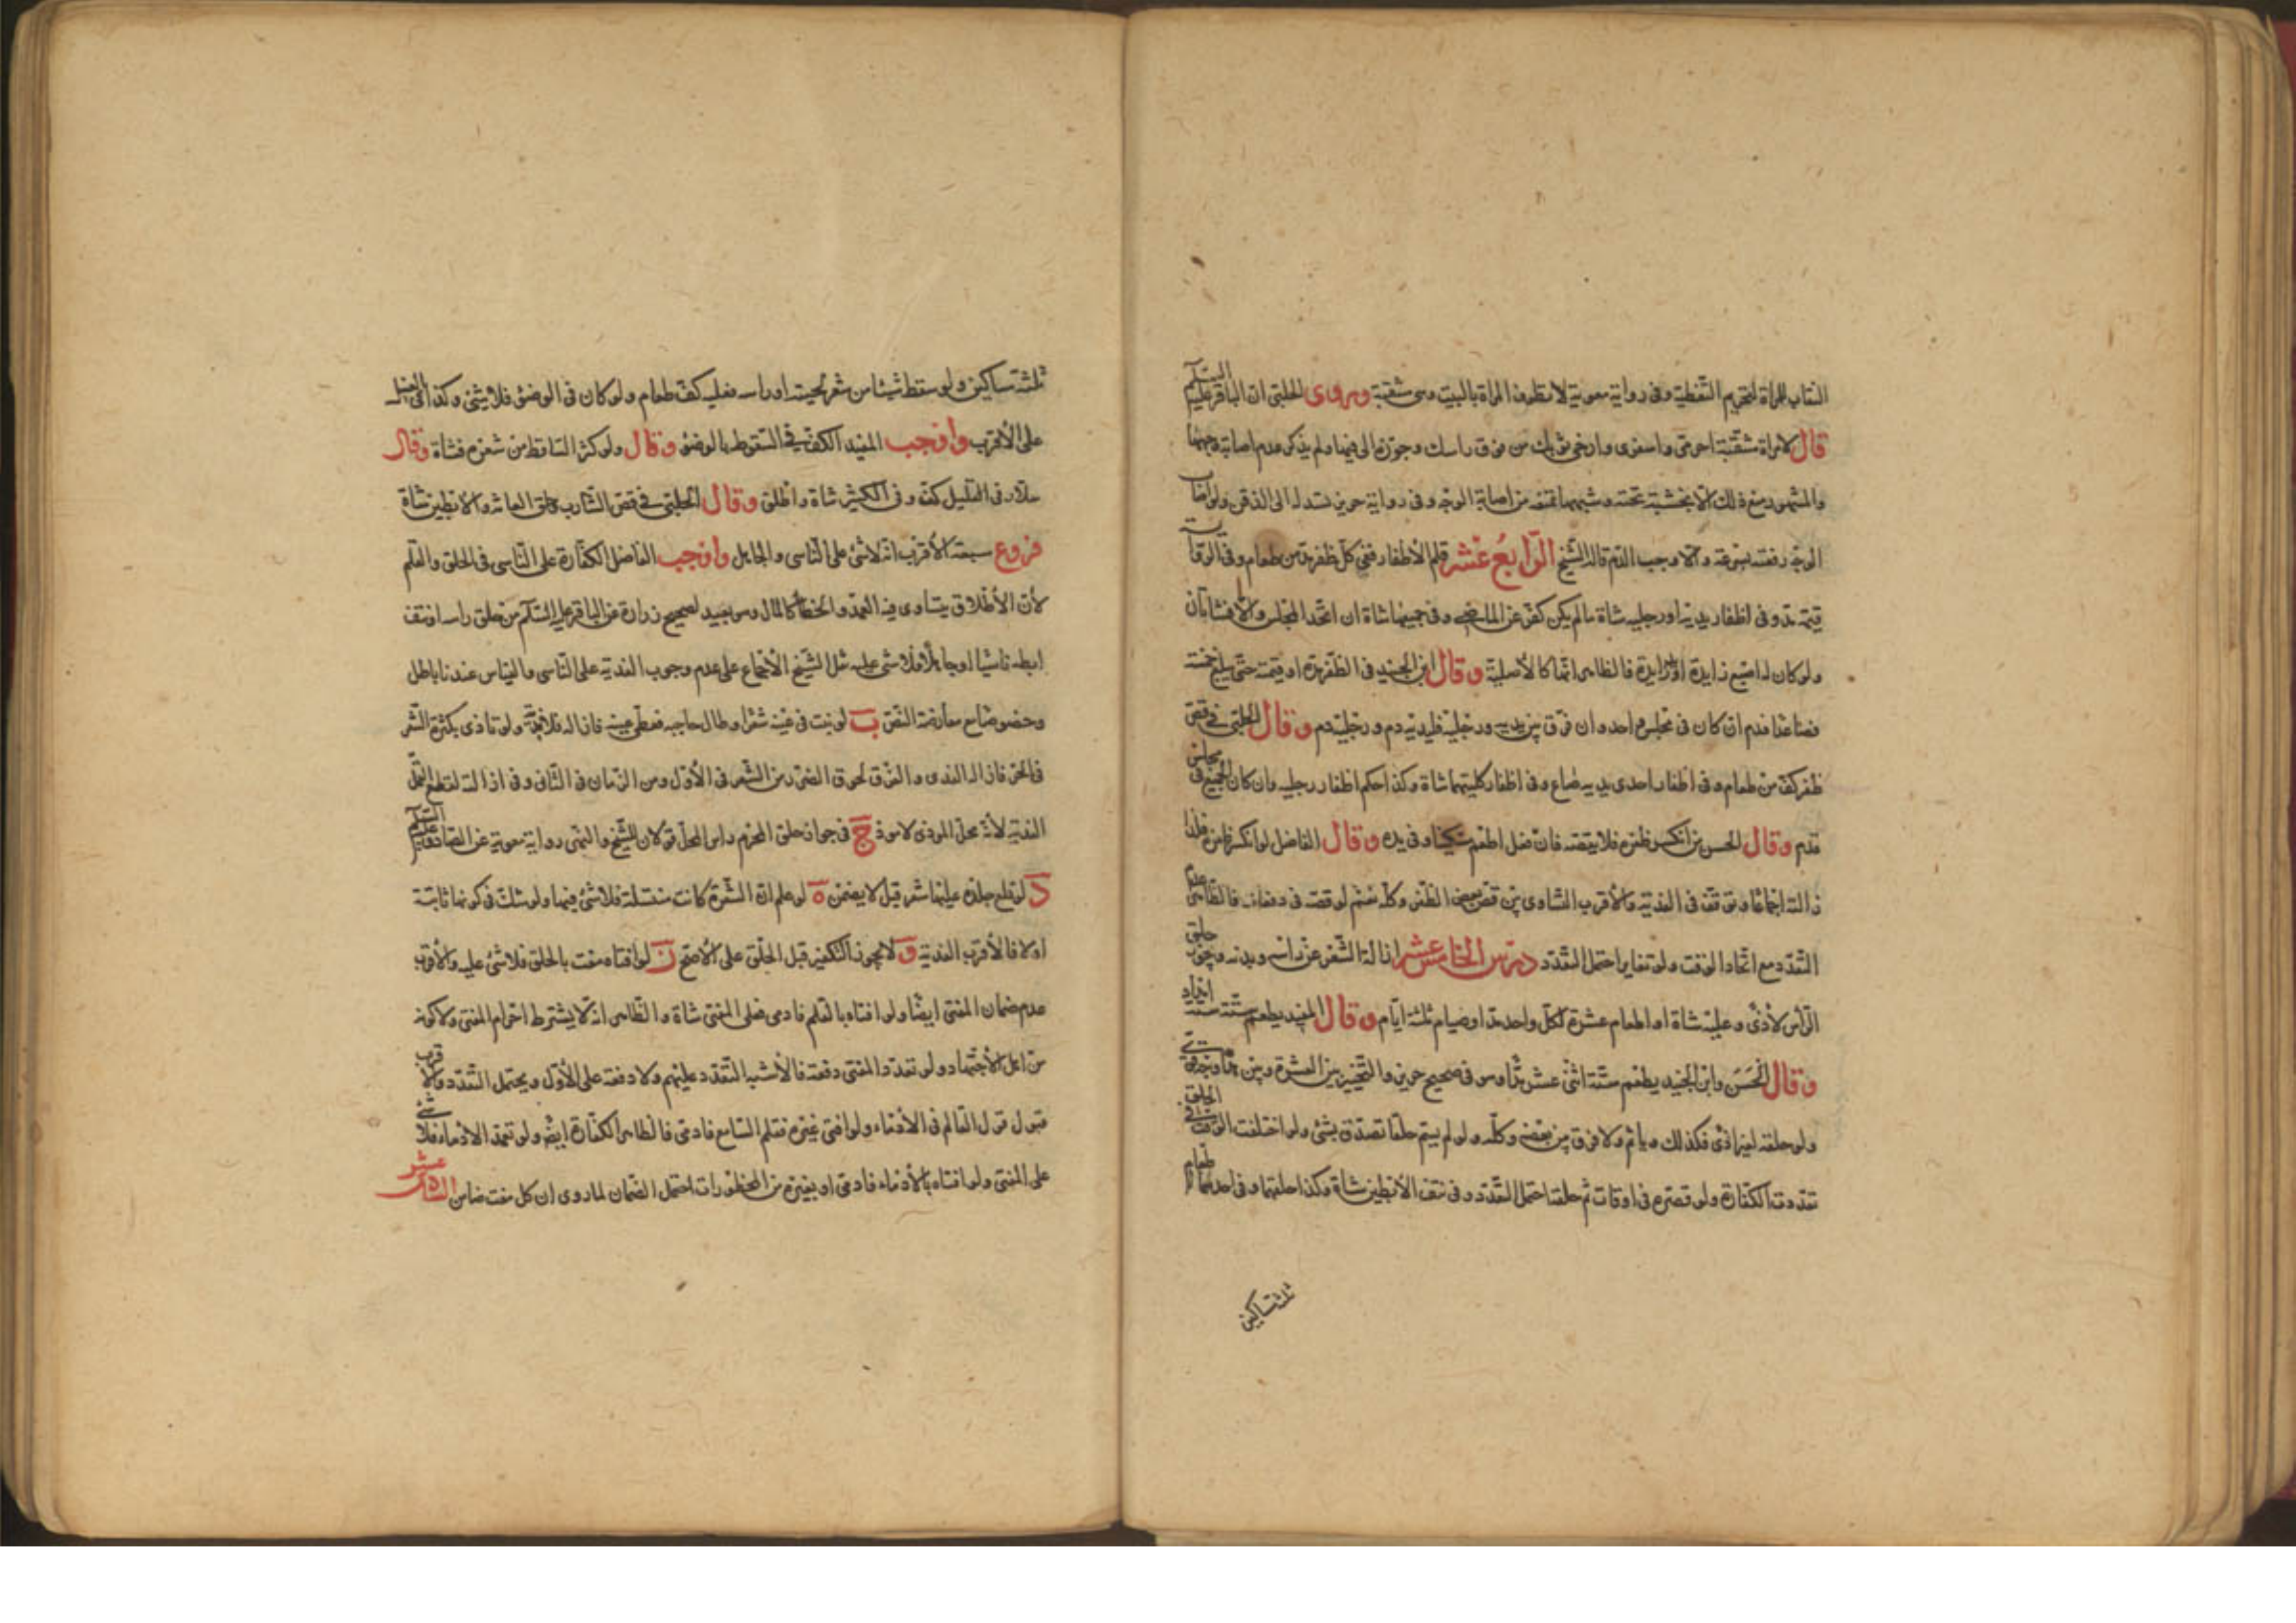 النقاب للمراة لتحريم التغطية وفى رواية معوية لا تطوف المراة بالبيت وهى متنقبة وروى الحلبى ان الباقر عليه السلام
قال لامراة متنقبة احرمى واسفرى وارخى ثوبك من فوق راسك وجوزه الى فيها ولم يذكر عدم اصابته وجهها
والمشهور منع ذلك الا بخشبة تحته وشبهها تمنعه من اصابة الوجه وفى رواية حريز تسدله الى الذقن ولو اصاب
الوجه رفعته بسرعة والا وجب الدم قاله الشيخ الرابع عشر قلم الأظفار ففى كل ظفر مد من طعام وفى الرواية
قيمة مد وفى اظفار يديه او رجليه شاة ما لم يكن كفر عن الماضى وفى جميعها شاة ان اتحد المجلس والا فشاتان
ولو كان له اصبع زايدة او يد زايدة فالظاهر انها كالأصلية وقال ابن الجنيد فى الظفر مد او قيمته حتى يبلغ خمسة
فصاعدا فدم ان كان فى مجلس واحد وان فرق بين يديه ورجليه فليديه دم ورجليه دم وقال الحلبى فى قص
ظفر كف من طعام وفى اظفار احدى يديه صاع وفى اظفار كلتيهما شاة وكذا حكم اظفار رجليه وان كان الجميع فى مجلس
فدم وقال الحسن من انكسر ظفره فلا يقصه فان فعل اطعم مسكينا فى يده وقال الفاضل لو انكسر ظفره فله
ازالته اجماعا وتوقف فى الفدية والأقرب التساوى بين قص بعض الظفر وكله نعم لو قصه فى دفعات فالظاهر عدم
التعدد مع اتحاد الوقت ولو تغاير احتمل التعدد درس الخامس عشر ازالة الشعر عن راسه وبدنه ويجوز حلق
الرأس لأذى وعليه شاة او اطعام عشرة لكل واحد مد او صيام ثلثة ايام وقال المفيد يطعم ستة ستة امداد
وقال الحسن وابن الجنيد يطعم ستة اثنى عشر مدا وهو فى صحيح حريز والتخيير بين العشرة وبين
ولو حلقه لغير اذى فكذلك وياثم ولا فرق بين بعضه وكله ولو لم يسم حلقا تصدق بشئ ولو اختلفت الوقت فى الحلق
تعددت الكفارة ولو قصره فى اوقات ثم حلقه احتمل التعدد وفى نتف الأبطين شاة وكذا حلقهما وفى احدهما اطعام
ثلثة مساكين
ثلثة مساكين ولو سقط شيئا من شعر لحيته او راسه فعليه كف طعام ولو كان فى الوضوء فلا شئ وكذا فى الغسل
على الأقرب واوجب المفيد الكف فى السقوط بالوضوء وقال ولو كثر الساقط من شعره فشاة وقال
سلار فى القليل كف وفى الكثير شاة واطلق وقال الحلبى فى قص الشارب وحلق العانة والابطين شاة
فروع سبعة الأقرب انه لا شئ على الناسى والجاهل واوجب الفاضل الكفارة على الناسى فى الحلق والقلم
لأن الأطلاق يتساوى فيه العمد والخطأ كالمال وهو بعيد لصحيح زرارة عن الباقر عليه السلام من حلق راسه او نتف
ابطه ناسيا او جاهلا فلا شئ عليه نقل الشيخ الأجماع على عدم وجوب الفدية على الناسى والقياس عندنا باطل
وخصوصا مع معارضة النص ب لو نبت فى عينه شعرا وطال حاجبه فغطى عينه فازاله فلا فدية ولو تاذى بكثرة الشعر
فى الحر فازاله الفدى والفرق لحوق الضرر من الشعر فى الأول ومن الزمان فى الثانى وفى ازالته لقطع القمل
الفدية لأنه محل الموذى لا موذ ج فى جواز حلق المحرم راس المحل قولان للشيخ والنهى رواية معوية عن الصادق عليه السلام
د لو قلع جلدة عليها شعر قيل لا يضمن ه لو علم ان الشعرة كانت منتسلة فلا شئ فيها ولو شك فى كونها ثابتة
او لا فالأقرب الفدية و لا يجوز التكفير قبل الحلق على الأصح ز لو افتاه مفت بالحلق فلا شئ عليه والأقرب
عدم ضمان المفتى ايضا ولو افتاه بالقلم فادمى فعلى المفتى شاة والظاهر انه لا يشترط احرام المفتى ولا كونه
من اهل الأجتهاد ولو تعدد المفتى دفعة فالأشبه التعدد عليهم ولا دفعة على الأول ويحتمل التعدد والأقرب
قبول قول القالم فى الأدماء ولو افتى غيره فقلم السامع فادمى فالظاهر الكفارة ايضا ولو تعمد الادماء فلا شئ
على المفتى ولو افتاه بالأدماء فادمى او بغيره من المحظورات احتمل الضمان لما روى ان كل مفت ضامن السادس عشر